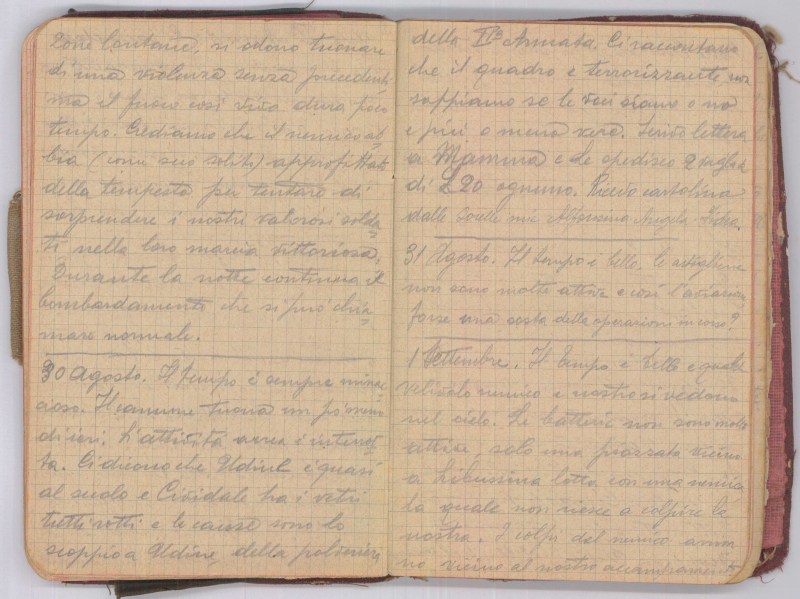 zone lontane, si odono tuonare
di una violenza senza precedenti
ma il fuoco così vivo dura poco
tempo. Crediamo che il nemico ab=
bia (come suo solito) approfittato
della tempesta per tentare di
sorprendere i nostri valorosi solda=
ti nella loro marcia vittoriosa.
Durante la notte continua il
bombardamento che si può chia=
mare normale.
30 Agosto. Il tempo è sempre minac
cioso. Il cannone tuona un po' meno
di ieri. L'attività aerea è interrot
ta. Ci dicono che Udine è quasi
al suolo e Cividale ha i vetri
tutti rotti e le cause sono lo
scoppio a Udine, della polveriera
della IIa Armata. Ci raccontano
che il quadro è terrorizzante, non
sappiamo se le voci siano o no
e più o meno vere. Scrivo lettera
a Mamma e Le spedisco 2 vaglia
di L 20 ognuno. Ricevo cartolina
dalle Sorelle mie Alfonsina Angela
31 Agosto. Il tempo è bello, le artiglierie
non sono molto attive e così l'aviazione
forse una sosta delle operazioni in corso?
1 Settembre. Il tempo è bello e qualche
velivolo nemico e nostro si vedono
nel cielo. Le batterie non sono molto
attive, solo una piazzata vicino
a Libussina lotta con una nemica
la quale non riesce a colpire la
nostra. I colpi del nemico
no vicino al nostro accampamento